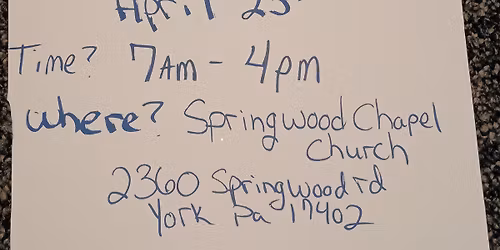 April 25
Time? 7Am - 4pm
where? Springwood Chapel
Church
2360 Springwood rd
York Pa 17402